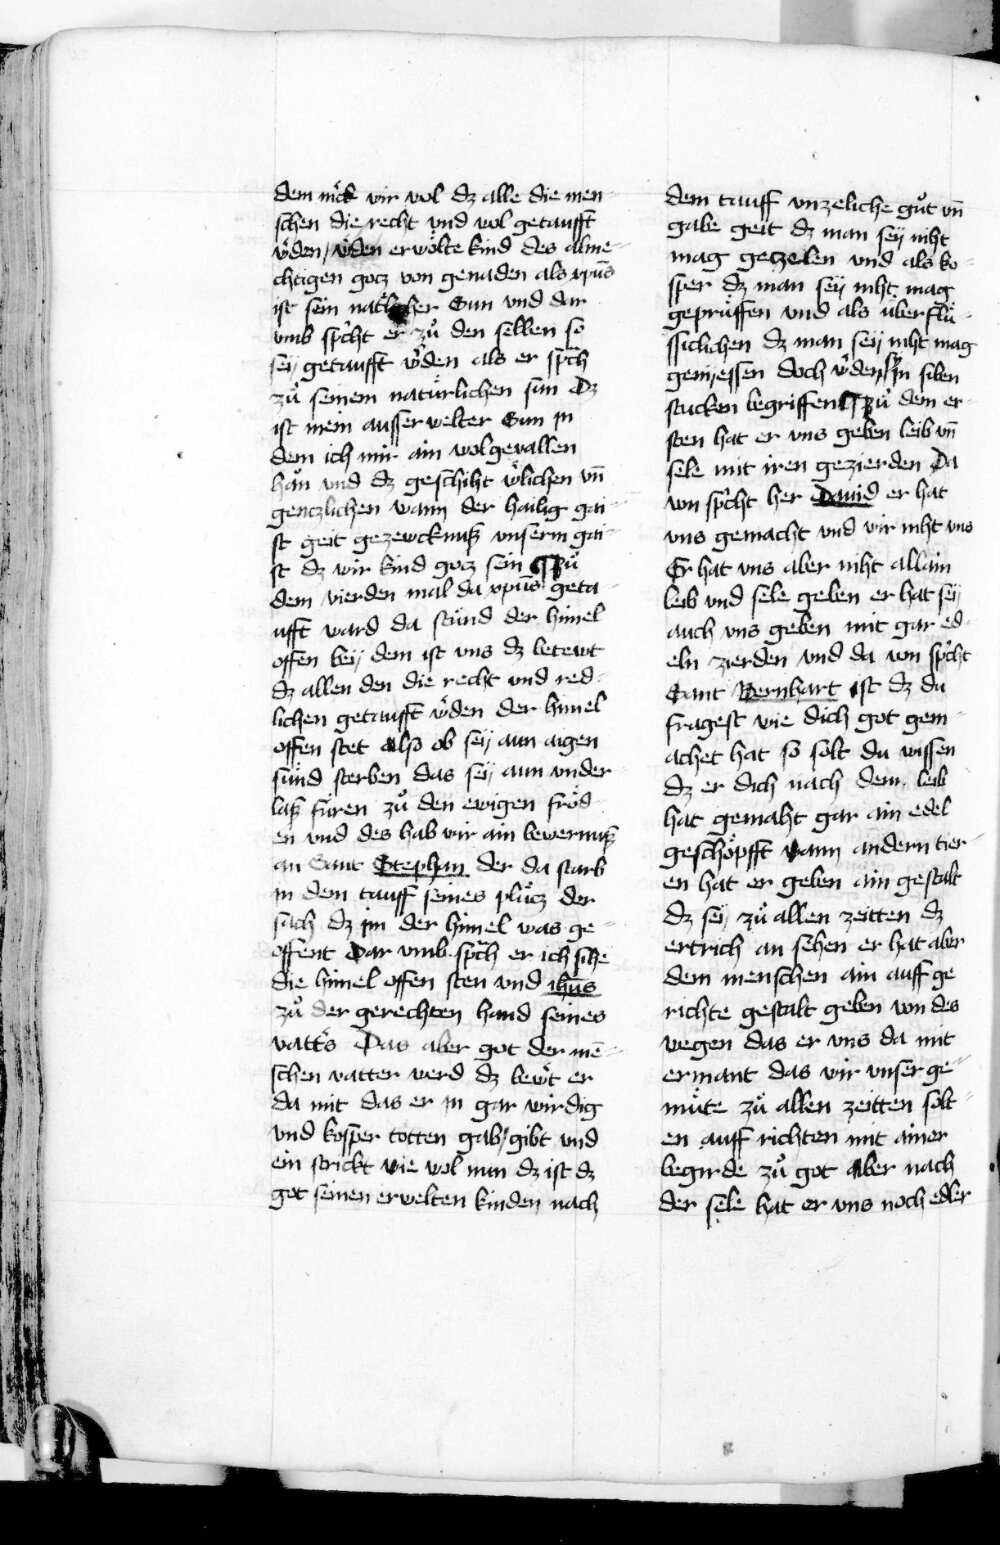 dem mͤck wir wol dz alle die men-
schen die recht vnd wol getaufft
wͤden / wͤden erwoͤlte kind des alme-
chtigen gocz von genaden als xpūs
ist sein natͤlicher Sun vnd dar
vmb spͥcht er zuͦ den selben so
seÿ getaufft wͤden als er spͣch
zuͦ seinem natuͤrlichen sun Dz
ist mein ausserwelter Sun jn
dem ich mir ain wolgevallen
han vnd dz geschiht wͤlichen vn̄
genczlichen wann der hailig gai-
st geit gezewcknuß vnserm gai-
st dz wir kind gocz sein ¶ Zuͦ
dem vierden mal da xpūs geta-
ufft ward da stuͦnd der himel
offen beÿ dem ist vns dz betewt
dz allen den die recht vnd red-
lichen getaufft wͤden der himel
offen stet also ob seÿ aun aigen
suͤnd sterben das seÿ aun vnder
laß fuͤren zuͦ den ewigen froͤd
en vnd des hab wir ain bewernuß
an Sant Stephan der da starb
in dem tauff seines pluͤcz der
sach dz jm der himel was ge-
offent Dar vmb spͣch er ich sihe
die himel offen sten vnd ihūs
zuͦ der gerechten hand seines
vatt͛s Das aber got der mē-
schen vatter werd dz bewͤt er
da mit das er in gar wirdig
vnd kosper totten gab / gibt vnd
ein strickt wie wol nun dz ist dz
got seinen erwelten kinden nach
dem tauff vnzeliche guͦt vn̄
gabe geit dz man seÿ niht
mag geczelen vnd als ko-
sper dz man seÿ niht mag
gepruͤffen vnd als uͤberfluͤ-
ssiclichen dz man seÿ niht mag
geniessen doch wͤden sÿ jn siben
stucken begriffen ¶ Zuͦ dem er-
sten hat er vns geben leib vn̄
sele mit iren gezierden Da
von spͥcht her Dauid er hat
vns gemacht vnd wir niht vns
Er hat vns aber niht allain
leib vnd sele geben er hat seÿ
auch vns geben mit gar ed-
eln zierden vnd da von spͥcht
Sant Bernhart ist dz du
fragest wie dich got gem-
achet hat so solt du wissen
dz er dich nach dem leib
hat gemaht gar ain edel
geschoͤpfft wann andern tier
en hat er geben ain gestalt
dz seÿ zuͦ allen zeitten dz
ertrich an sehen er hat aber
dem menschen ain auff ge
richte gestalt geben von des
wegen das er vns da mit
ermant das wir vnser ge-
muͤte zuͦ allen zeitten solt-
en auff richten mit ainer
begirde zuͦ got aber nach
der sele hat er vns noch edler